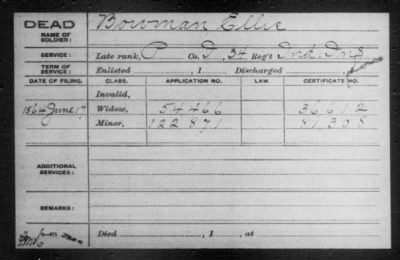 DEAD
NAME OF SOLDIER: Bowman Ellie
SERVICE: Late rank, P Co. D, 34 Reg't Ind. Inf
TERM OF SERVICE: Enlisted , 1 Discharged
DATE OF FILING. CLASS. APPLICATION NO. LAW. CERTIFICATE NO.
Invalid,
1864 June 17 Widow, 54466 36,612
Minor, 122871 87,358
ADDITIONAL SERVICES:
REMARKS:
Died , 1 , at